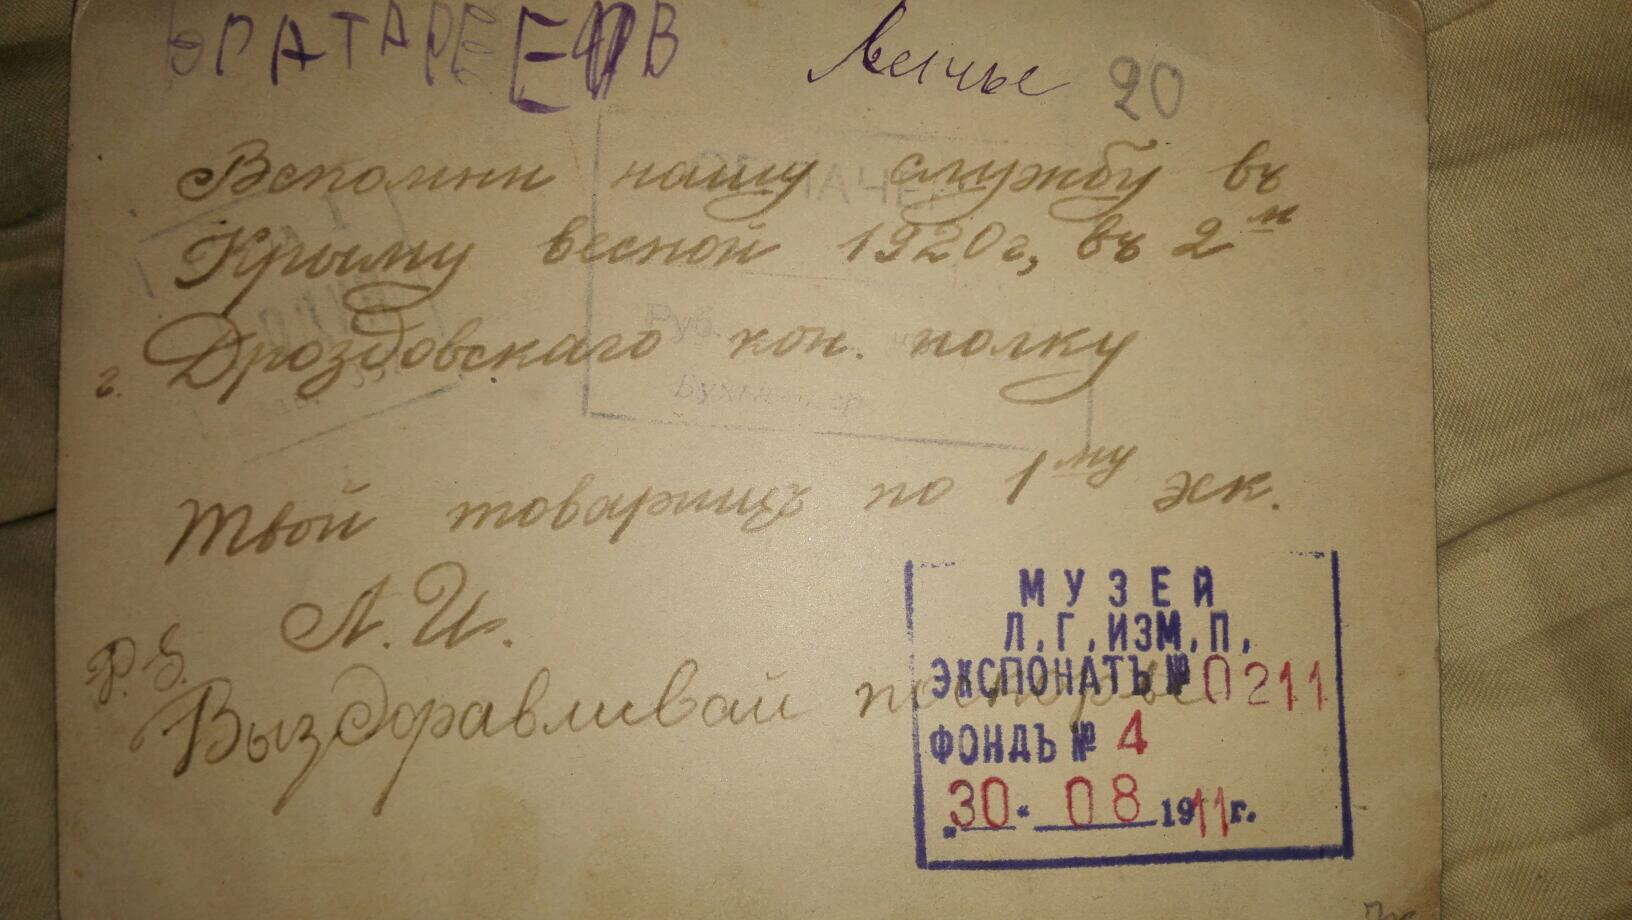 20
Вспомни нашу службу въ
Крыму весной 1920г, въ 2м
г. Дроздовскаго кон. полку
Руб.
Бухгалтер
Твой товарищъ по 1му эск.
А.И.
P.S.
Выздравливай поскорѣе
МУЗЕЙ
Л.Г.ИЗМ.П.
ЭКСПОНАТЪ № 0211
ФОНДЪ № 4
30 - 08 1911г.